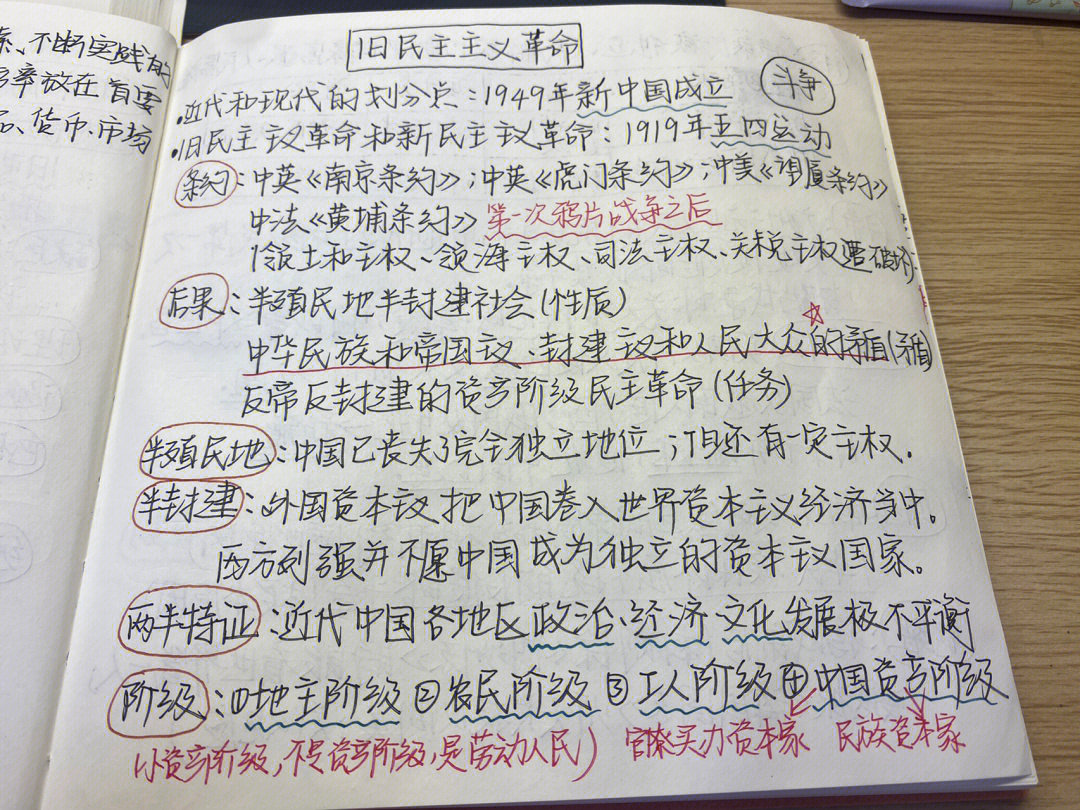 不断实践的
率放在首要
货币、市场
旧民主主义革命
斗争
·近代和现代的划分点：1949年新中国成立
·旧民主主义革命和新民主主义革命：1919年五四运动
条约：中英《南京条约》；中英《虎门条约》；中美《望厦条约》
中法《黄埔条约》第一次鸦片战争之后
领土和主权、领海主权、司法主权、关税主权遭破坏
后果：半殖民地半封建社会（性质）
中华民族和帝国主义、封建主义和人民大众的矛盾（矛盾）
反帝反封建的资产阶级民主革命（任务）
半殖民地：中国已丧失了完全独立地位；但还有一定主权.
半封建：外国资本主义把中国卷入世界资本主义经济当中。
西方列强并不愿中国成为独立的资本主义国家。
两半特证：近代中国各地区政治、经济文化发展极不平衡
阶级：①地主阶级②农民阶级③工人阶级④中国资产阶级
（小资产阶级，不是资产阶级，是劳动人民） 官僚买力资本家 民族资本家